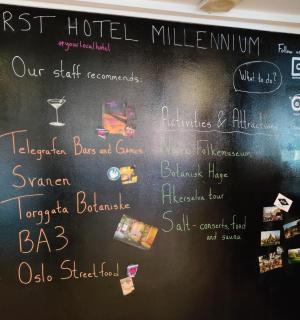 RST HOTEL MILLENNIUM
#yourlocalhotel
Follow
Our staff recommends:
What to do?
Telegrafen Bars and Games
Svanen
Torggata Botaniske
BA3
Oslo Streetfood
Activities & Attractions
Folkemuseum
Botanisk Hage
Akerselva tour
Salt - conserts, food
and sauna